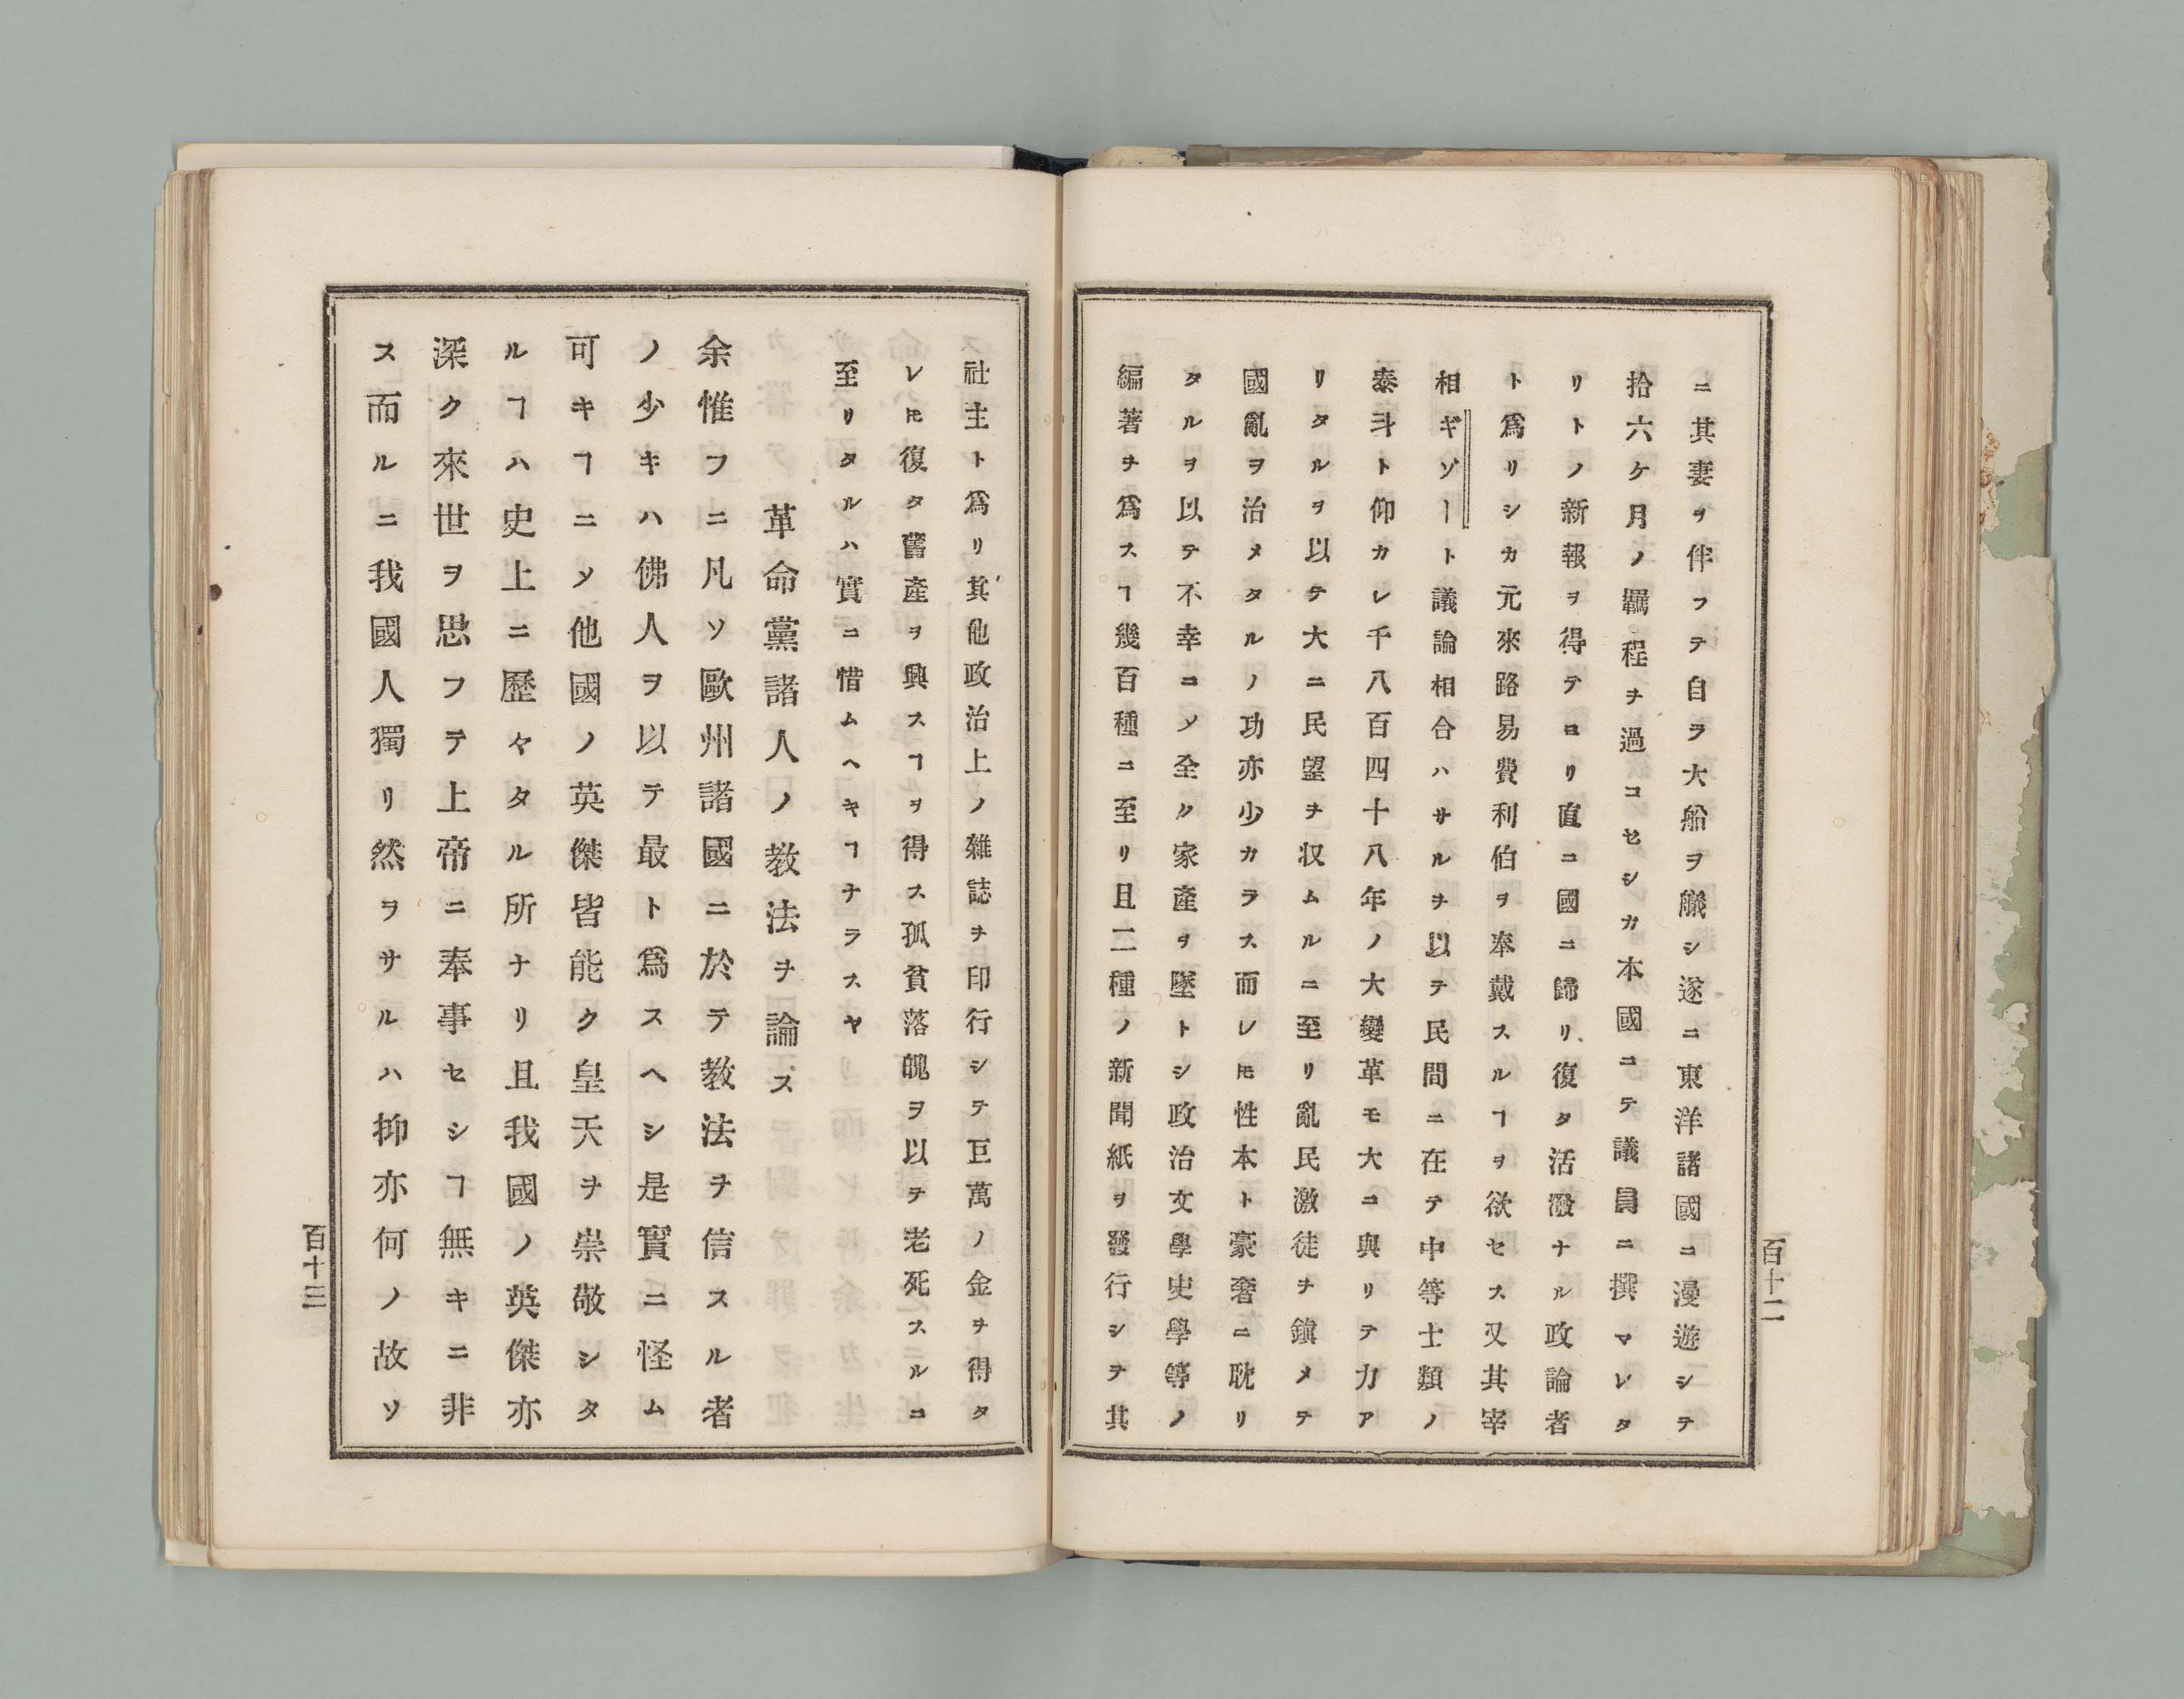 ニ其妻ヲ伴フテ自ラ大船ヲ艤シ遂ニ東洋諸國ニ漫遊シテ
拾六ケ月ノ羈程ヲ過コセシカ本國ニテ議員ニ撰マレタ
リトノ新報ヲ得テヨリ直ニ國ニ歸リ復タ活潑ナル政論者
ト爲リシカ元來路易費利伯ヲ奉戴スルヿヲ欲セス又其宰
相ギゾート議論相合ハサルヲ以テ民間ニ在テ中等士類ノ
泰斗ト仰カレ千八百四十八年ノ大變革モ大ニ與リテ力ア
リタルヲ以テ大ニ民望ヲ収ムルニ至リ亂民激徒ヲ鎭メテ
國亂ヲ治メタルノ功亦少カラス而レ𪜈性本ト豪奢ニ耽リ
タルヲ以テ不幸ニ〆全ク家產ヲ墜トシ政治文學史學等ノ
編著ヲ爲スヿ幾百種ニ至リ且二種ノ新聞紙ヲ發行シテ其
百十二
社主ト爲リ其他政治上ノ雜誌ヲ印行シテ巨萬ノ金ヲ得タ
レ𪜈復タ舊產ヲ興スヿヲ得ス孤貧落魄ヲ以テ老死スルニ
至リタルハ實ニ惜ムヘキヿナラスヤ
革命黨諸人ノ教法ヲ論ス
余惟フニ凡ソ歐州諸國ニ於テ教法ヲ信スル者
ノ少キハ佛人ヲ以テ最ト爲スヘシ是實ニ怪ム
可キヿニ〆他國ノ英傑皆能ク皇天ヲ崇敬シタ
ルヿハ史上ニ歷々タル所ナリ且我國ノ英傑亦
深ク來世ヲ思フテ上帝ニ奉事セシヿ無キニ非
ス而ルニ我國人獨リ然ヲサルハ抑亦何ノ故ソ
百十三